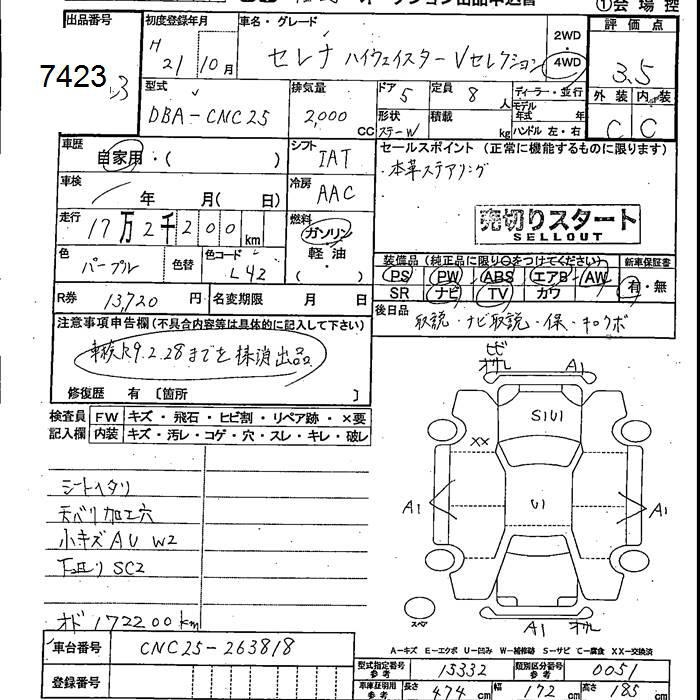 ①会場控
出品番号 初度登録年月 車名・グレード 評価点
7423
H 21 10月 セレナ ハイウェイスターVセレクション 2WD・4WD 3.5
型式 排気量 ドア 5 定員 8人 ディーラー・並行 外装 内装
DBA-CNC25 2,000CC 形状 ステーW 積載 kg モデル年式 年 ハンドル 左・右 C C
車歴 自家用・( ) シフト IAT セールスポイント (正常に機能するものに限ります)
車検 年 月( 日) 冷房 AAC 本革ステアリング
走行 17万2千200km 燃料 ガソリン・軽油・( ) 売切りスタート
SELLOUT
色 パープル 色替 色コード L42 装備品 (純正品に限り○をつけてください) 新車保証書
PS PW ABS エアB AW 有・無
SR ナビ TV カワ
R券 13,720円 名変期限 月 日 後日品
取説・ナビ取説・保・キロクボ
注意事項申告欄 (不具合内容等は具体的に記入して下さい)
R9.2.28までを抹消出品
修復歴 有 〔箇所 〕
検査員記入欄 FW キズ・飛石・ヒビ割・リペア跡・×要
内装 キズ・汚レ・コゲ・穴・スレ・キレ・破レ
シートヘタリ
天ベリ加工穴
小キズAU W2
下回りSC2
オド172200km
A1
S1U1
XX
A1 U1 A1
スペ A1
A-キズ E-エクボ U-凹み W-補修跡 S-サビ C-腐食 XX-交換済
車台番号 CNC25-263818
登録番号
型式指定番号 参考 15332 類別区分番号 参考 0051
車庫証明用 参考 長さ 474cm 幅 172cm 高さ 185cm